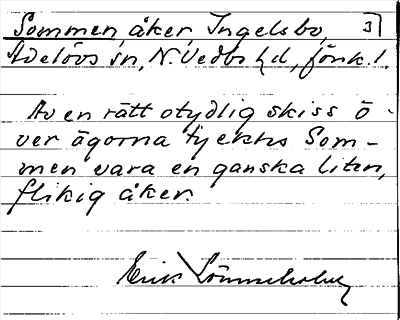 Sommen, åker, Ingelsbo, 3]
Adelövs sn, N. Vedbo hd, Jönk. l.
Av en rätt otydlig skiss ö-
ver ägorna tyckts Som-
men vara en ganska liten,
flikig åker.
Erik Lönnerholm